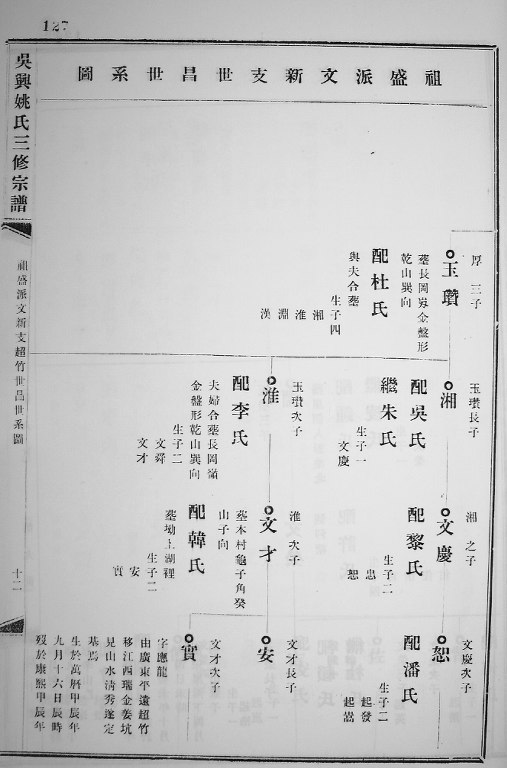 127
吳興姚氏三修宗譜
祖盛派文新支超竹世昌世系圖
十二
祖盛派文新支世昌世系圖
厚 三子
玉瓚
墓長岡崬金盤形
乾山巽向
配杜氏
與夫合墓
生子四
湘 淮 淵 漢
玉瓚長子
湘
配吳氏
繼朱氏
生子一
文慶
玉瓚次子
淮
配李氏
夫婦合墓長岡嶺
金盤形乾山巽向
生子二
文舜
文才
湘 之子
文慶
配黎氏
生子二
忠
恕
淮 次子
文才
墓本村龜子角癸
山子向
配韓氏
墓坳上湖裡
生子二
安
實
文慶次子
恕
配潘氏
生子二
起發
起嵩
文才長子
安
文才次子
實
字應龍
由廣東平遠超竹
移江西瑞金姜坑
見山水清秀遂定
基焉
生於萬曆甲辰年
九月十六日辰時
歿於康熙甲辰年